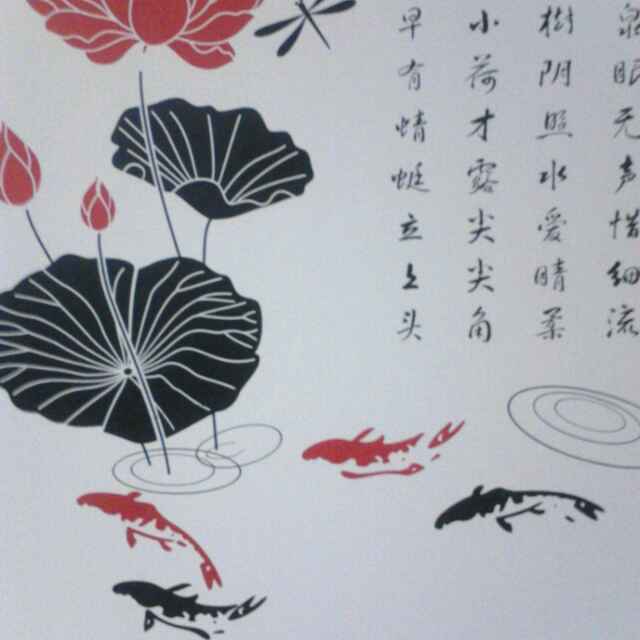 泉眼无声惜细流
樹阴照水爱晴柔
小荷才露尖尖角
早有蜻蜓立上头